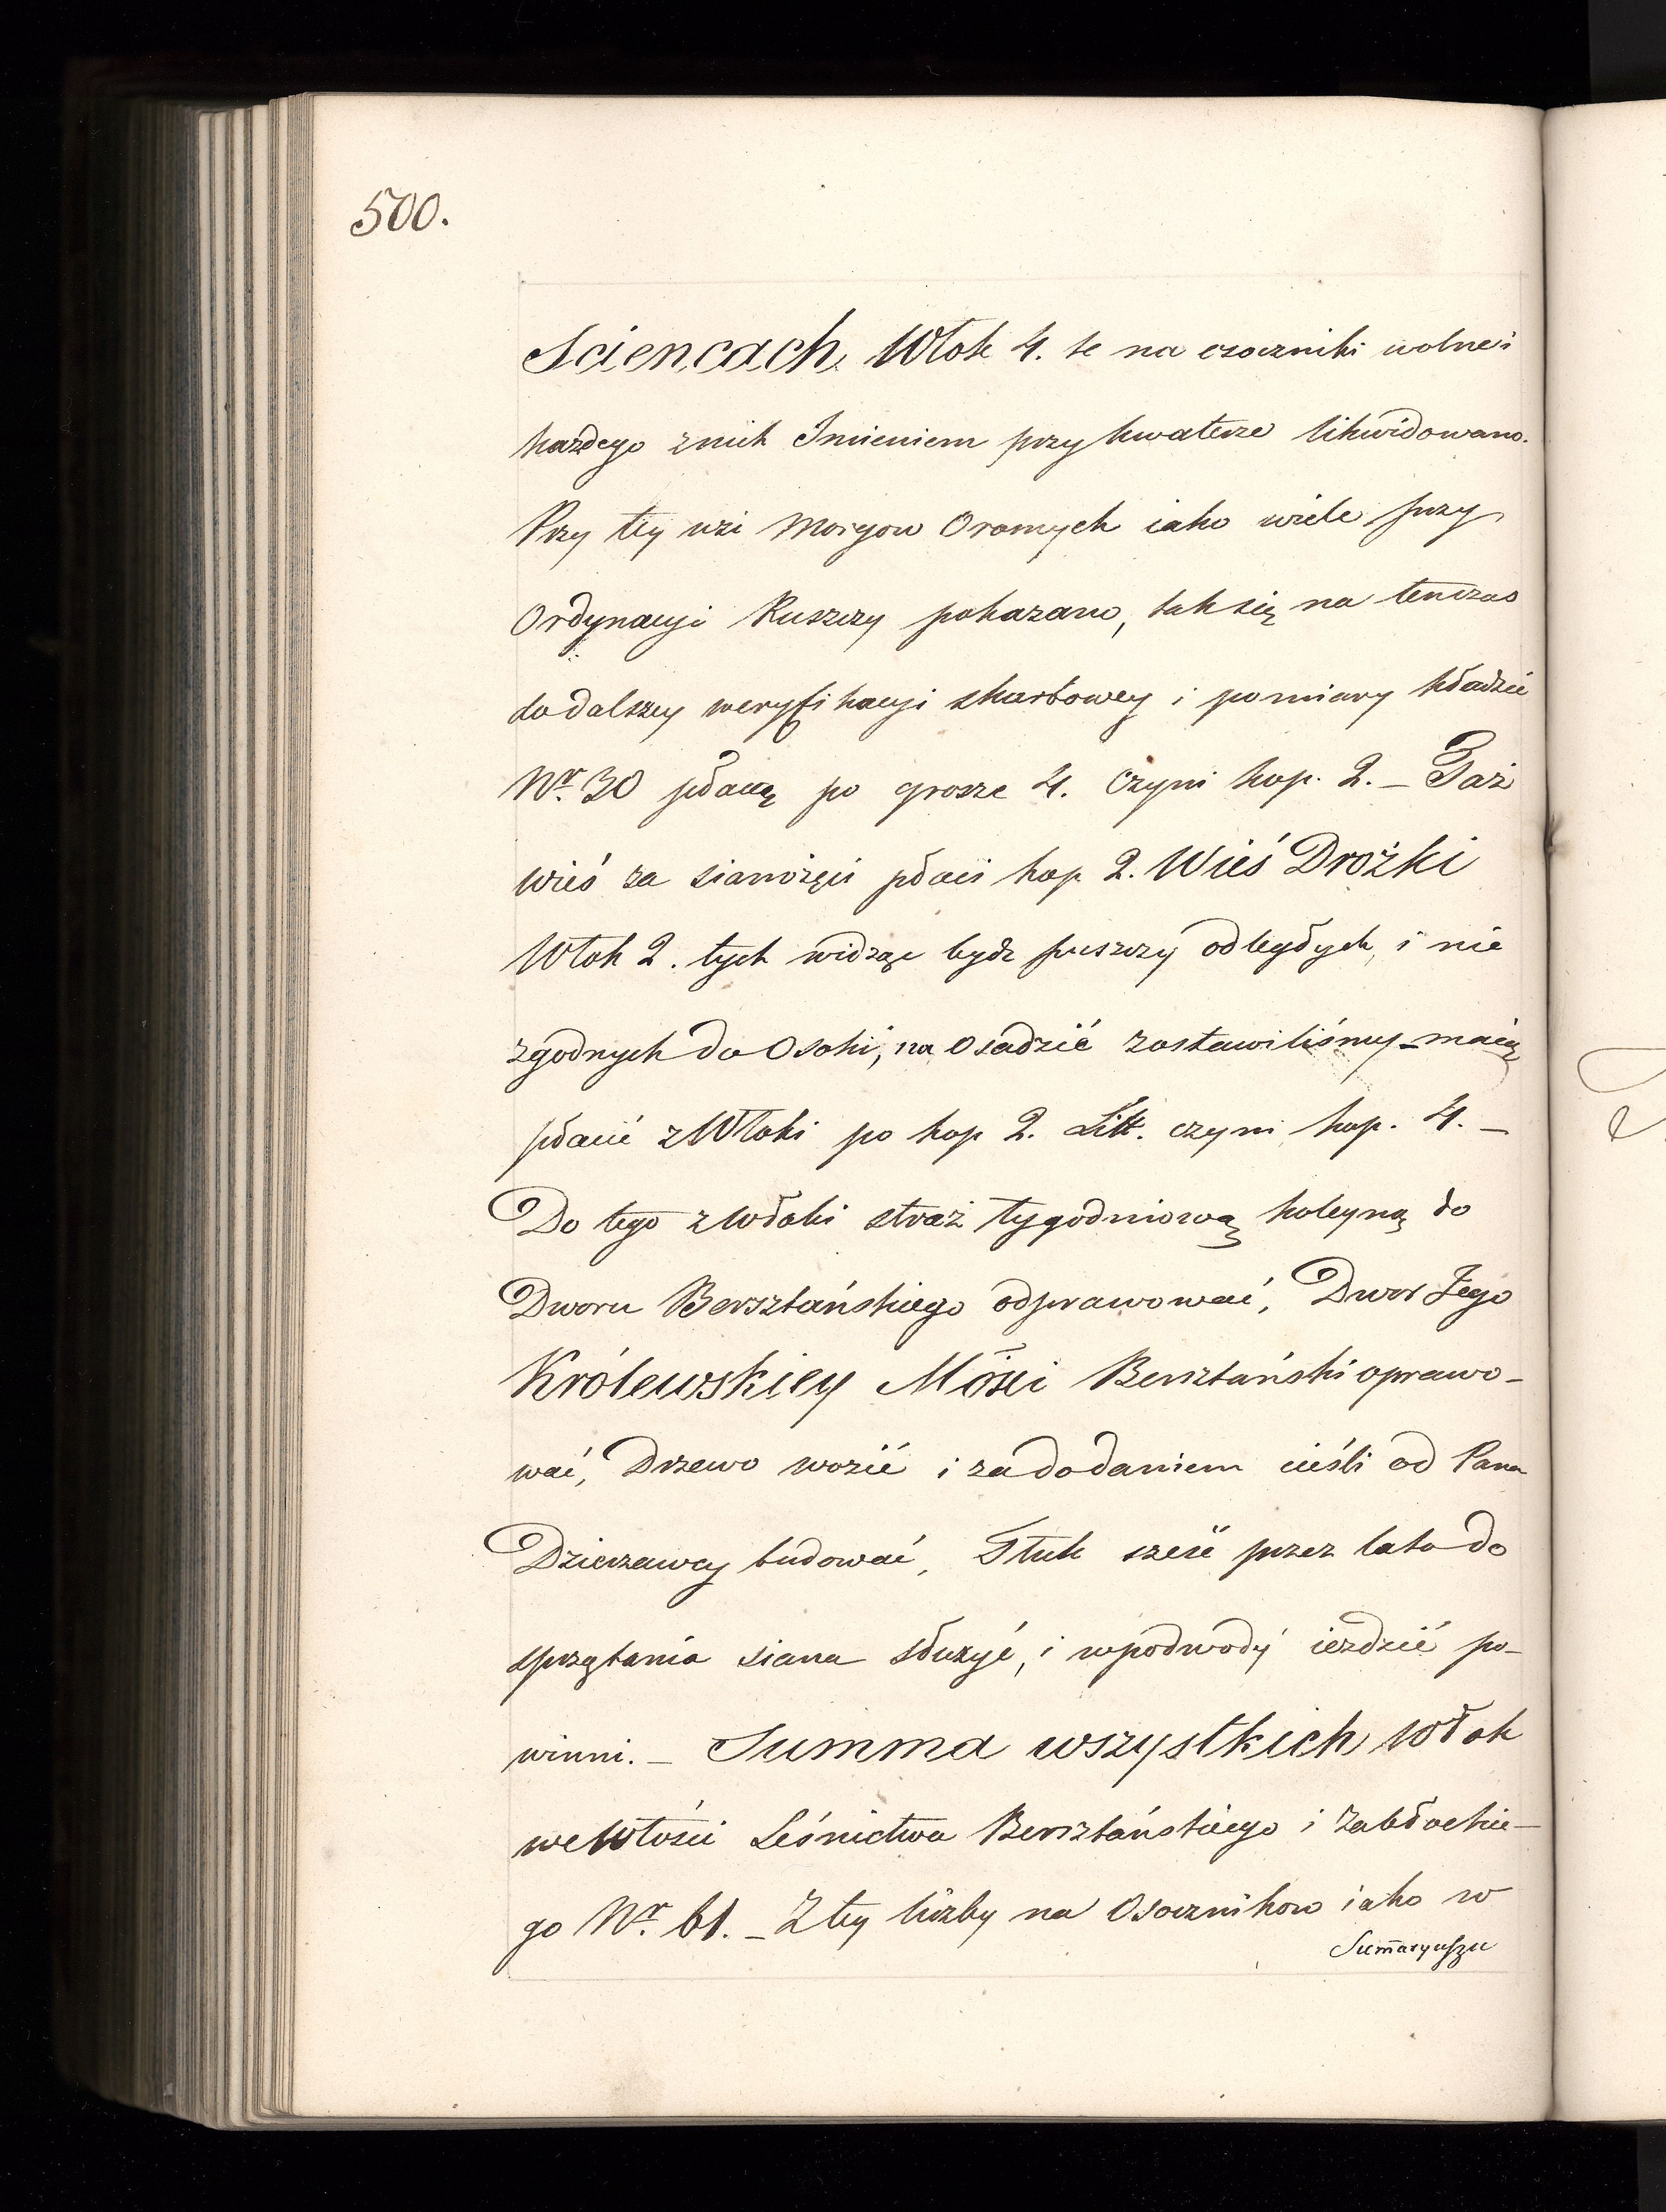 500.
Sciencach Włok 4. te na esoczniki wolne i
każdego z nich Imieniem przy kwaterze likwidowano.
Przy tey wsi Morgow Oromych iako wiele przy
Ordynacyi Puszczy pokazano, tak się na tenczas
do dalszey weryfikacyi skarbowey i pomiary kładzie
Nr. 30 płacą po grosze 4. Czyni kop. 2. _ Taż
wieś za sianożęci płaci kop 2. Wieś Drożki
Włok 2. tych widząc bydz puszczy odległych, i nie
zgodnych do Osoki, na Osadzie zostawiliśmy _ maią
płacić z Włoki po kop 2. Litt. czyni kop. 4. _
Do tego z Włoki straż tygodniową koleyną do
Dworu Bersztańskiego odprawować, Dwor Jego
Królewskiey Mości Bersztański oprawo_
wać, Drzewo wozić i za dodaniem cieśli od Pana
Dzierzawcy budować, Tłuk sześć przez lato do
sprzątania siana służyć, i w podwody iezdzić po_
winni. _ Summa wszystkich Włok
we Włości Leśnictwa Bersztańskiego i Zabłockie_
go Nr. 61. _ Z tey liczby na Osocznikow iako w
Sumaryuszu